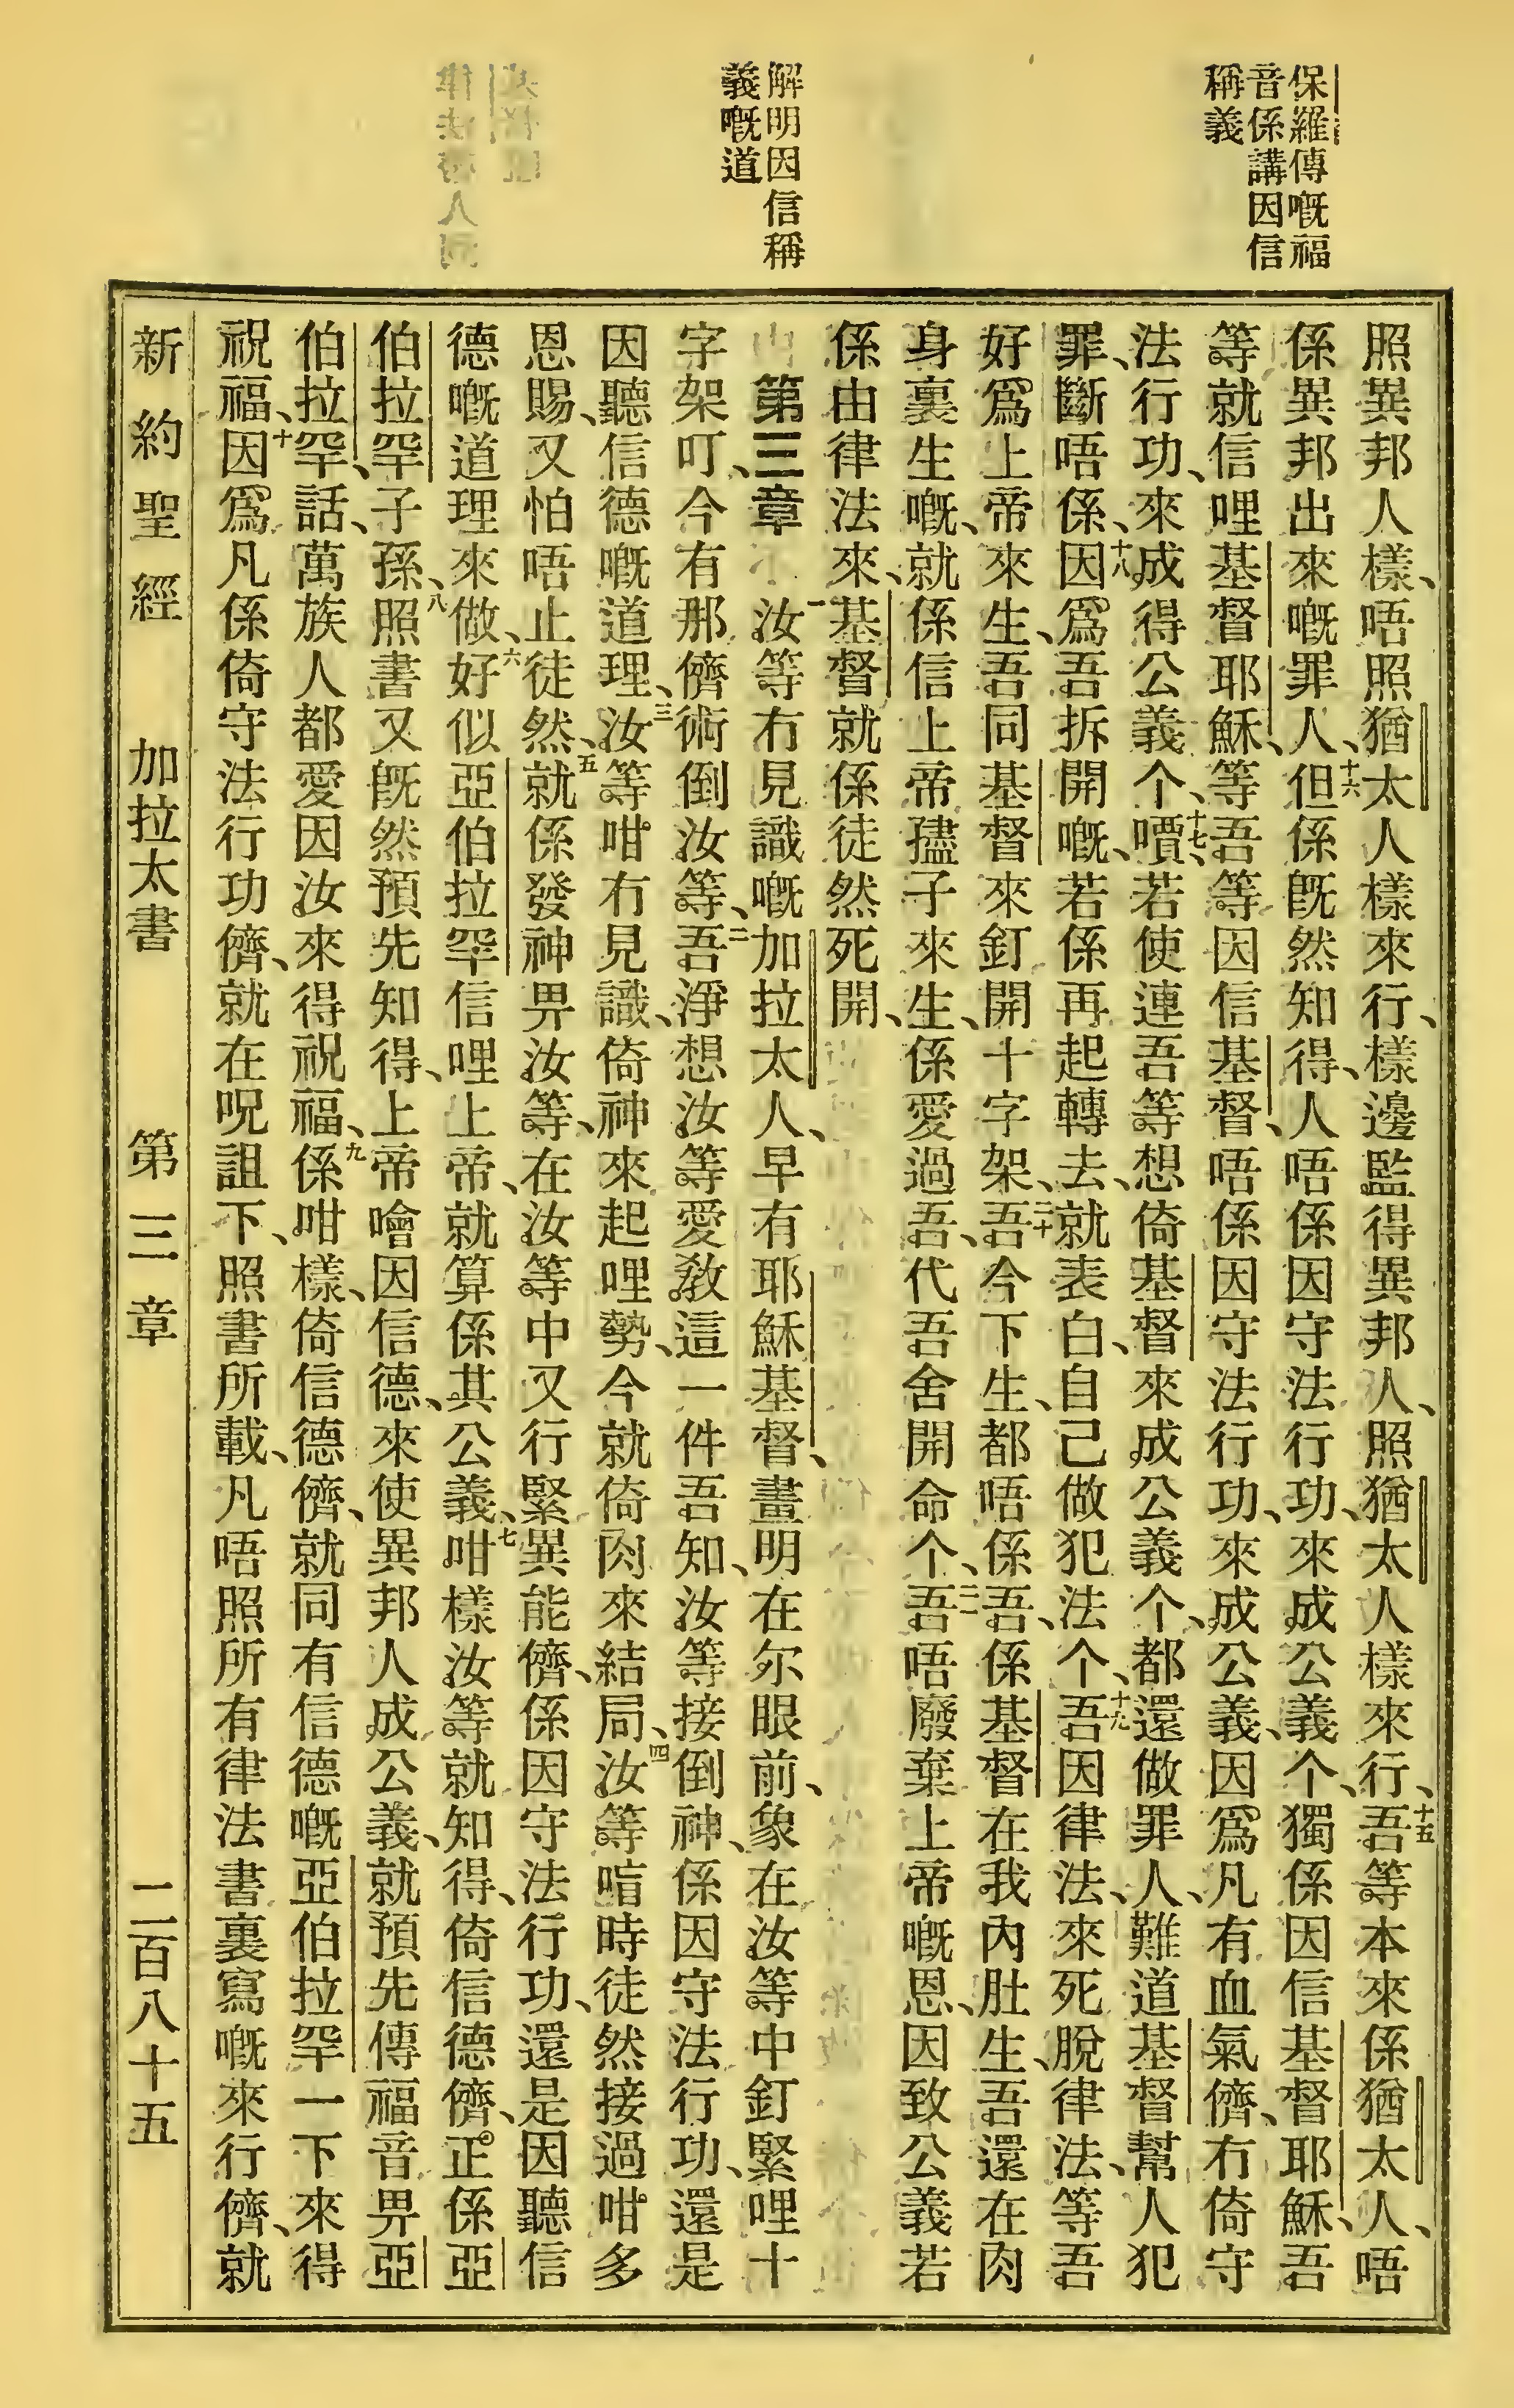 保羅傳嘅福
音係講因信
稱義
解明因信稱
義嘅道
照異邦人樣、唔照猶太人樣來行、樣邊監得異邦人、照猶太人樣來行、十五吾等本來係猶太人、唔
係異邦出來嘅罪人、十六但係旣然知得、人唔係因守法行功、來成公義个、獨係因信基督耶穌、吾
等就信哩基督耶穌、等吾等因信基督、唔係因守法行功、來成公義、因爲凡有血氣儕、冇倚守
法行功、來成得公義个、十七嘳、若使連吾等想倚基督來成公義个、都還做罪人、難道基督幫人犯
罪、斷唔係、十八因爲吾拆開嘅、若係再起轉去、就表白、自己做犯法个、十九吾因律法、來死脫律法、等吾
好爲上帝來生、吾同基督來釘開十字架、二十吾今下生、都唔係吾、係基督在我內肚生、吾還在肉
身裏生嘅、就係信上帝孻子來生、係愛過吾、代吾舍開命个、二一吾唔廢棄上帝嘅恩、因致公義若
係由律法來、基督就係徒然死開、
第三章 一汝等冇見識嘅加拉太人、早有耶穌基督、畫明在尔眼前、象在汝等中釘緊哩十
字架叮、今有那儕術倒汝等、二吾淨想汝等愛敎這一件吾知、汝等接倒神、係因守法行功、還是
因聽信德嘅道理、三汝等咁冇見識、倚神來起哩勢、今就倚肉來結局、四汝等喑時徒然接過咁多
恩賜、又怕唔止徒然、五就係發神畀汝等、在汝等中又行緊異能儕、係因守法行功、還是因聽信
德嘅道理來做、六好似亞伯拉罕信哩上帝、就算係其公義、七咁樣汝等就知得、倚信德儕、正係亞
伯拉罕子孫、八照書又旣然預先知得、上帝噲因信德、來使異邦人成公義、就預先傳福音畀亞
伯拉罕、話、萬族人都愛因汝來得祝福、九係咁樣、倚信德儕、就同有信德嘅亞伯拉罕一下來得
祝福、十因爲凡係倚守法行功儕、就在呪詛下、照書所載、凡唔照所有律法書裏寫嘅來行儕、就
新約聖經 加拉太書 第三章 二百八十五